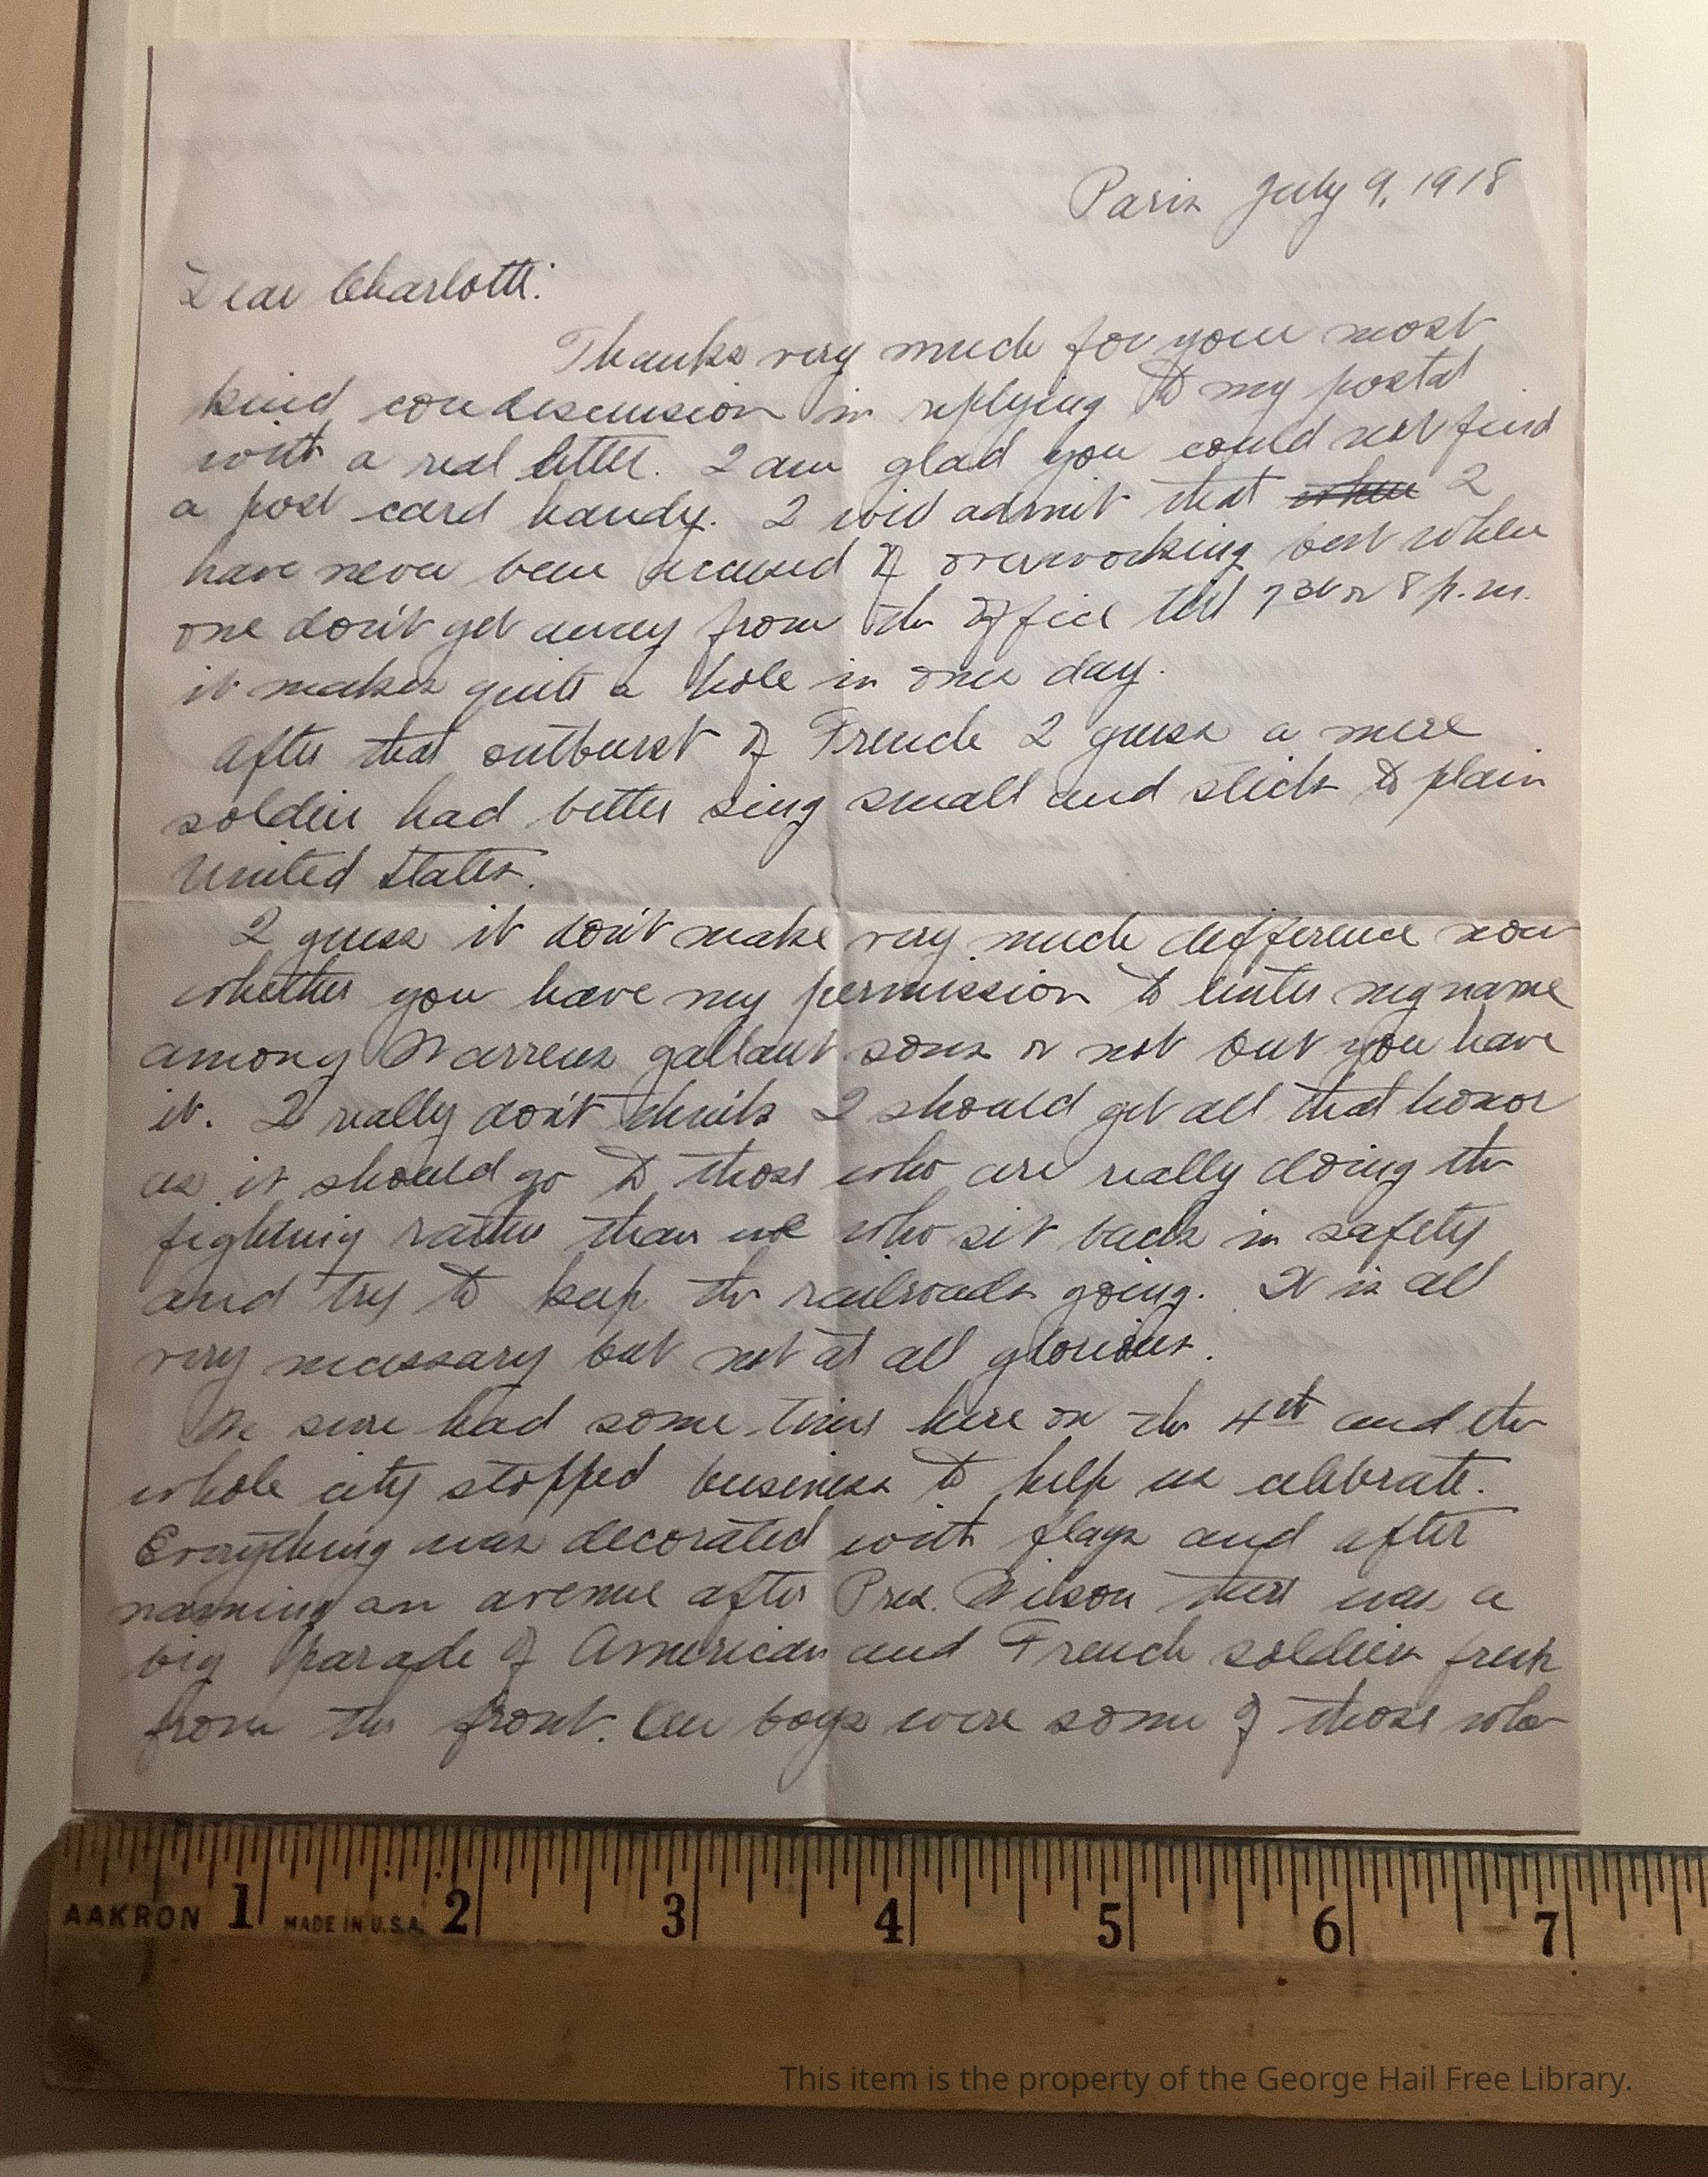 Paris July 9, 1918
Dear Charlotte:
Thanks very much for your most
kind condescension in replying to my postal
with a real letter. I am glad you could not find
a post card handy. I will admit that when I
have never been accused of overworking but when
one don't get away from the office till 7 30 or 8 p.m.
it makes quite a hole in ones day.
After that outburst of French I guess a mere
soldier had better sing small and stick to plain
United States.
I guess it don't make very much difference now
whether you have my permission to enter my name
among Warrens gallant sons or not but you have
it. I really don't think I should get all that honor
as it should go to those who are really doing the
fighting rather than we who sit back in safety
and try to keep the railroads going. It is all
very necessary but not at all glorious.
We sure had some time here on the 4th and the
whole city stopped business to help us celebrate.
Everything was decorated with flags and after
naming an avenue after Pres. Wilson there was a
big parade of American and French soldiers fresh
from the front. Our boys were some of those who
AAKRON 1 MADE IN U.S.A. 2 3 4 5 6 7
This item is the property of the George Hail Free Library.